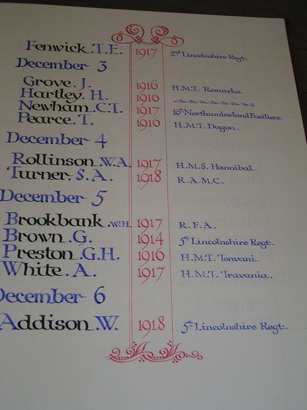 Fenwick. T.E. 1917 2nd Lincolnshire Regt.
December 3
Grove. J. 1916 H.M.T. Remarko.
Hartley. H. 1916
Newham. C.T. 1917 Northumberland Fusiliers.
Pearce. T. 1916 H.M.T. Dagon.
December 4
Rollinson. W.A. 1917 H.M.S. Hannibal.
Turner. S.A. 1918 R.A.M.C.
December 5
Brookbank. W.H. 1917 R.F.A.
Brown. G. 1914 5th Lincolnshire Regt.
Preston. G.H. 1916 H.M.T.
White. A. 1917 H.M.T.
December 6
Addison. W. 1918 5th Lincolnshire Regt.